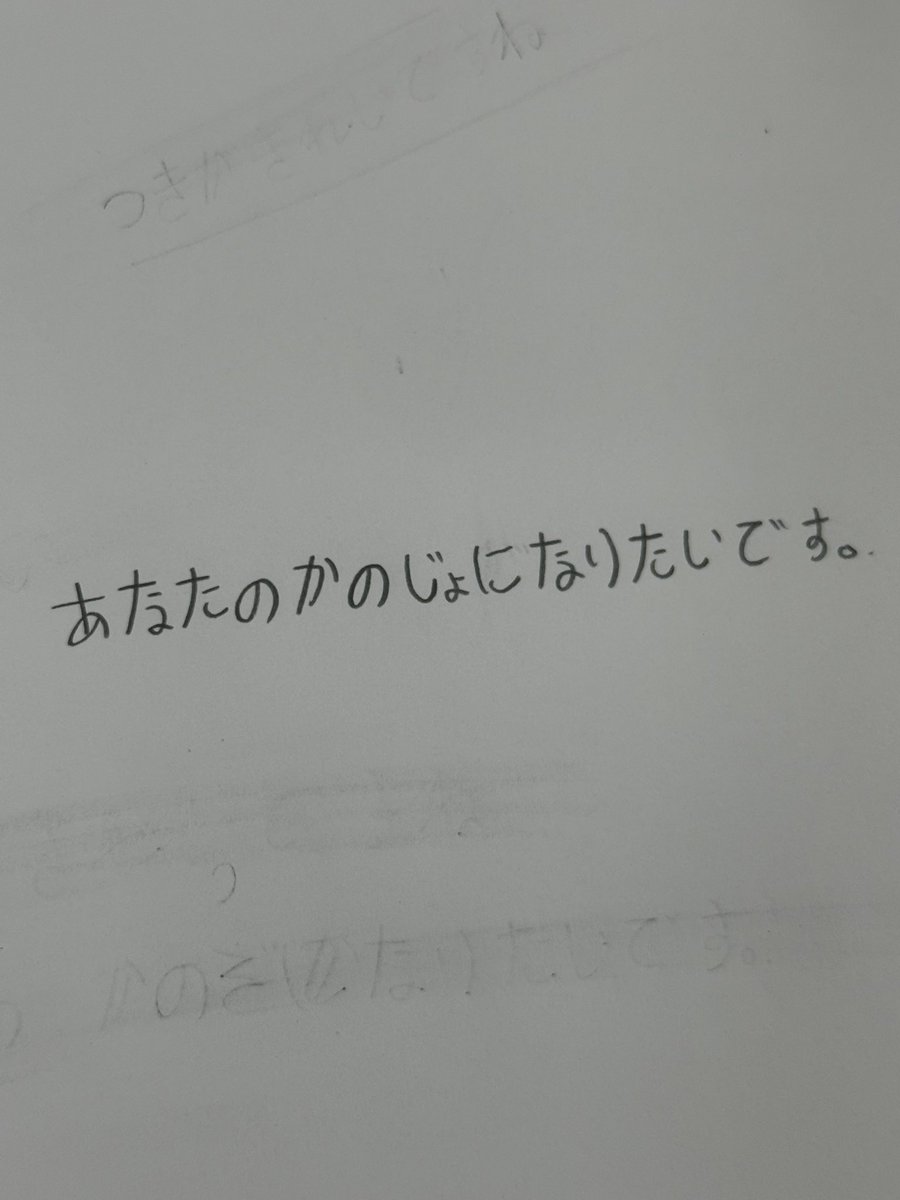 つきがきれいですね
あなたのかのじょになりたいです。
なりたいです。